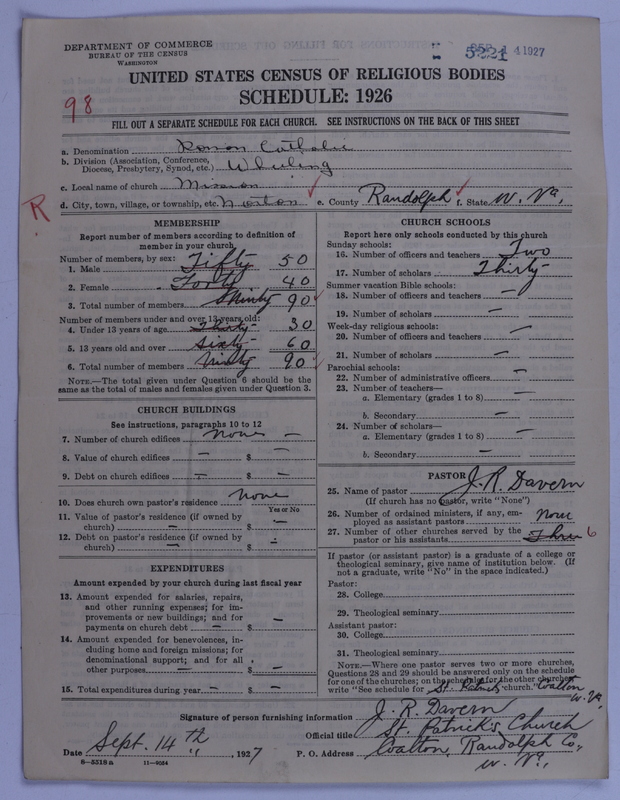 DEPARTMENT OF COMMERCE
BUREAU OF THE CENSUS
WASHINGTON
5221
1 4 1927
UNITED STATES CENSUS OF RELIGIOUS BODIES
SCHEDULE: 1926
98
FILL OUT A SEPARATE SCHEDULE FOR EACH CHURCH. SEE INSTRUCTIONS ON THE BACK OF THIS SHEET
a. Denomination Roman Catholic
b. Division (Association, Conference,
Diocese, Presbytery, Synod, etc.) Wheeling
c. Local name of church Mission
R d. City, town, village, or township, etc. Norton e. County Randolph f. State W. Va,
MEMBERSHIP
Report number of members according to definition of
member in your church
Number of members, by sex:
1. Male Fifty 50
2. Female Forty 40
3. Total number of members Ninty 90
Number of members under and over 13 years old:
4. Under 13 years of age Thirty 30
5. 13 years old and over Sixty 60
6. Total number of members Ninty 90
NOTE.—The total given under Question 6 should be the
same as the total of males and females given under Question 3.
CHURCH BUILDINGS
See instructions, paragraphs 10 to 12
7. Number of church edifices none —
8. Value of church edifices — $ —
9. Debt on church edifices — $ —
10. Does church own pastor's residence none
Yes or No
11. Value of pastor's residence (if owned by
church) — $ —
12. Debt on pastor's residence (if owned by
church) — $ —
EXPENDITURES
Amount expended by your church during last fiscal year
13. Amount expended for salaries, repairs,
and other running expenses; for im-
provements or new buildings; and for
payments on church debt — $ —
14. Amount expended for benevolences, in-
cluding home and foreign missions; for
denominational support; and for all
other purposes — $ —
15. Total expenditures during year — $ —
CHURCH SCHOOLS
Report here only schools conducted by this church
Sunday schools:
16. Number of officers and teachers Two
17. Number of scholars Thirty
Summer vacation Bible schools:
18. Number of officers and teachers —
19. Number of scholars —
Week-day religious schools:
20. Number of officers and teachers —
21. Number of scholars —
Parochial schools:
22. Number of administrative officers —
23. Number of teachers—
a. Elementary (grades 1 to 8) —
b. Secondary —
24. Number of scholars—
a. Elementary (grades 1 to 8) —
b. Secondary —
PASTOR
25. Name of pastor J. R. Davern
(If church has no pastor, write "None")
26. Number of ordained ministers, if any, em-
ployed as assistant pastors none
27. Number of other churches served by the
pastor or his assistants Three 6
If pastor (or assistant pastor) is a graduate of a college or
theological seminary, give name of institution below. (If
not a graduate, write "No" in the space indicated.)
Pastor:
28. College
29. Theological seminary
Assistant pastor:
30. College
31. Theological seminary
NOTE.—Where one pastor serves two or more churches,
Questions 28 and 29 should be answered only on the schedule
for one of the churches; on the schedules for the other churches
write "See schedule for St. Patricks church." Coalton
W. Va.
Signature of person furnishing information J. R. Davern
Official title St. Patrick's Church
Date Sept. 14th, 1927 P. O. Address Coalton, Randolph Co.,
W. Va.,
8—5318 a 11—9054